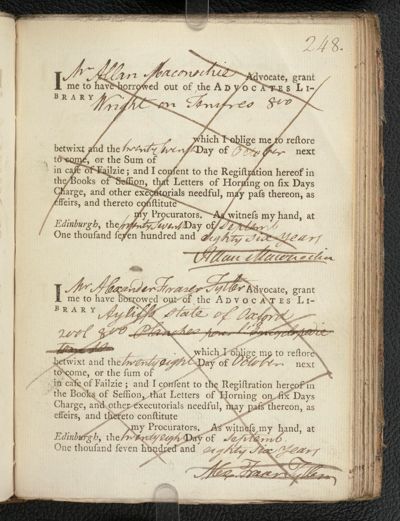 248.
I Mr Allan Maconochie Advocate, grant
me to have borrowed out of the ADVOCATES LI-
BRARY Wright on 8vo
which I oblige me to reſtore
betwixt and the Day of October next
to come, or the Sum of
in caſe of Failzie; and I conſent to the Regiſtration hereof in
the Books of Seſſion, that Letters of Horning on ſix Days
Charge, and other executorials needful, may paſs thereon, as
effeirs, and thereto conſtitute
my Procurators. As witneſs my hand, at
Edinburgh, the Day of Septemb
One thouſand ſeven hundred and eighty Six Years
Allan Maconochie
I Mr Alexander Fraser Tytler Advocate, grant
me to have borrowed out of the ADVOCATES LI-
BRARY Ayliffs State of Oxford
2 vol 8vo Planches pour l'Encyclopedie
which I oblige me to reſtore
betwixt and the twenty eight Day of October next
to come, or the ſum of
in caſe of Failzie; and I conſent to the Regiſtration hereof in
the Books of Seſſion, that Letters of Horning on ſix Days
Charge, and other executorials needful, may paſs thereon, as
effeirs, and thereto conſtitute
my Procurators. As witneſs my hand, at
Edinburgh, the twenty eight Day of Septemb
One thouſand ſeven hundred and eighty Six Years
Alex Fraser Tytler